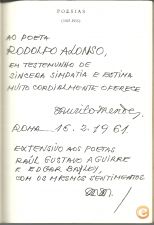 POESIAS
AO POETA
RODOLFO ALONSO,
EM TESTEMUNHO DE
SINCERA SIMPATIA E ESTIMA
MUITO CORDIALMENTE OFERECE
Murilo Mendes
ROMA 16. 2. 1961
EXTENSIVO AOS POETAS
RAÚL GUSTAVO AGUIRRE
E EDGAR BAYLEY,
COM OS MESMOS SENTIMENTOS